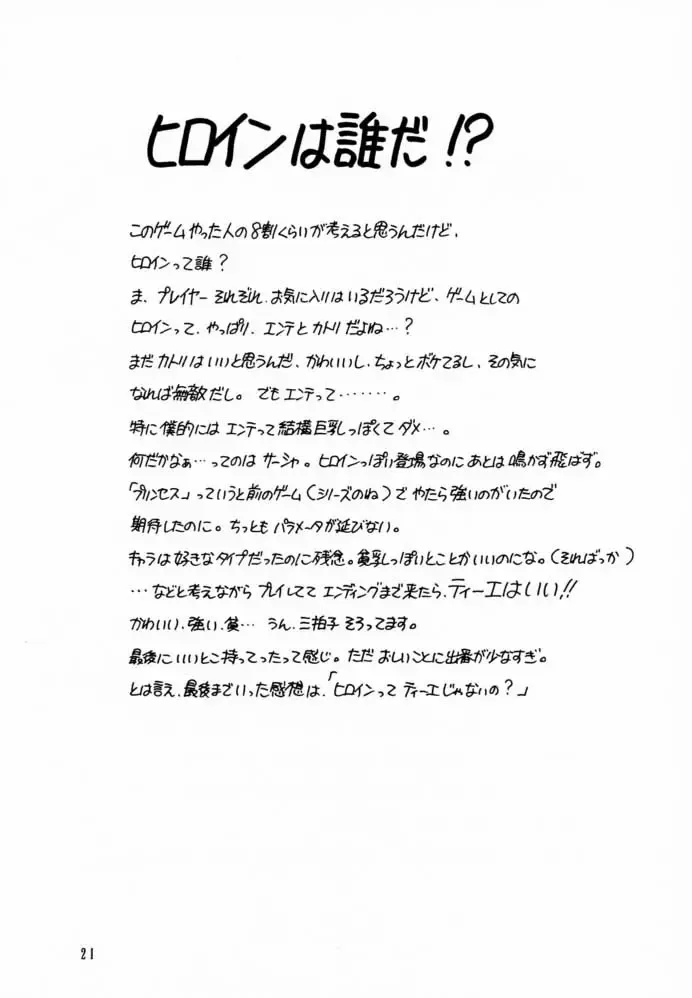 ヒロインは誰だ!?
このゲームやった人の8割くらいが考えると思うんだけど、
ヒロインって誰?
ま、プレイヤーそれぞれ、お気に入りはいるだろうけど、ゲームとしての
ヒロインって、やっぱり、エンテとカトリだよね…?
まだカトリはいいと思うんだ、かわいいし、ちょっとボケてるし、その気に
なれば無敵だし。でもエンテって………。
特に僕的にはエンテって結構巨乳しっぽくてダメ…。
何だかなぁ…ってのはサーシャ。ヒロインっぽい登場なのにあとは鳴かず飛ばず。
「プリンセス」っていうと前のゲーム(シリーズのね)でやたら強いのがいたので
期待したのに。ちっともパラメータが延びない。
キャラは好きなタイプだったのに残念。貧乳しっぽいとことかいいのにな。(そればっか)
…などと考えながらプレイしててエンディングまで来たら、ティーエはいい!!
かわいい、強い、貧… うん、三拍子そろってます。
最後にいいとこ持ってったって感じ。ただおしいことに出番が少なすぎ。
とは言え、最後までいった感想は、「ヒロインってティーエじゃないの?」
21